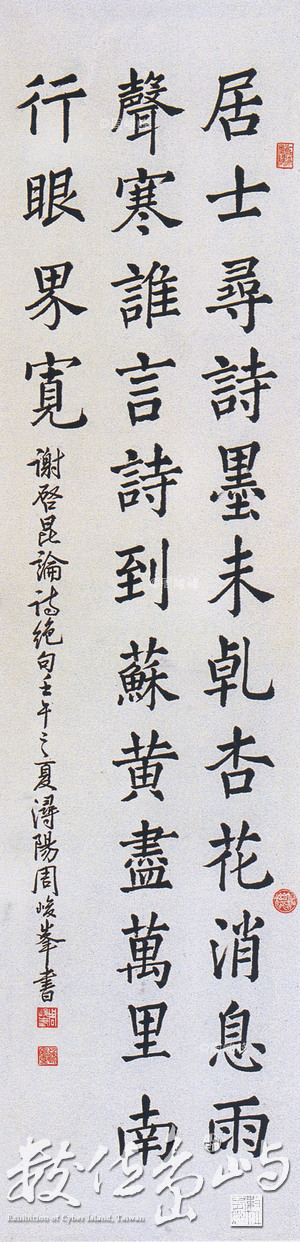 居士尋詩墨未乹杏花消息雨
聲寒誰言詩到蘇黄盡萬里南
行眼界寬
謝啓昆論詩絕句壬午之夏潯陽周峻峯書
數位島嶼
Exhibition of Cyber Island, Taiwan